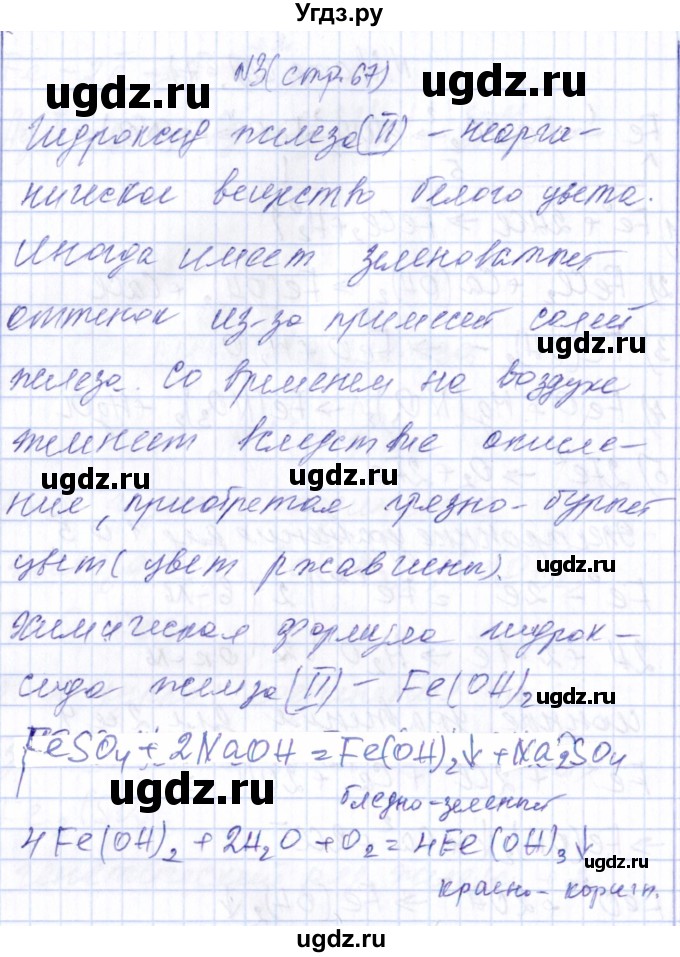 Угдз.ру
№3(стр.67)
ugdz.ru ugdz.ru
Гидроксид железа(II) – неорга-
ническое вещество белого цвета.
Иногда имеет зеленоватый
оттенок из-за примесей солей
ugdz.ru
железа. Со временем на воздухе
темнеет вследствие окисле-
ugdz.ru ugdz.ru
ния, приобретая грязно-бурый
цвет (цвет ржавчины).
ugdz.ru
Химическая формула гидрок-
сида железа (II) – Fe(OH)₂
ugdz.ru
FeSO₄ + 2NaOH = Fe(OH)₂↓ + Na₂SO₄
ugdz.ru ugdz.ru
бледно-зеленый
4Fe(OH)₂ + 2H₂O + O₂ = 4Fe(OH)₃↓
ugdz.ru
красно-коричн.
ugdz.ru